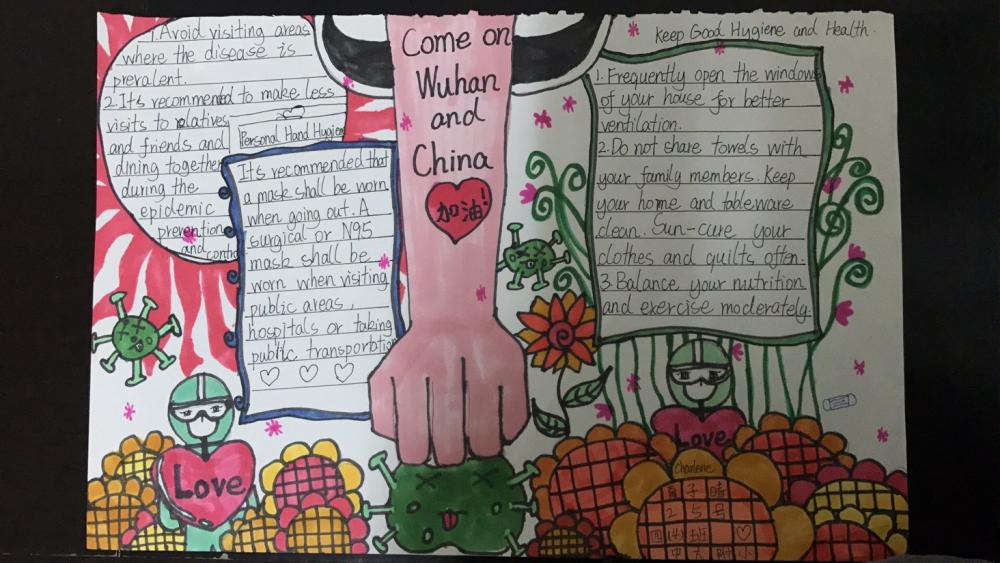 1.Avoid visiting areas
where the disease is
prevalent.
2.It's recommented to make less
visits to relatives
and friends and
dining together
during the
epidemic
prevention
and contro
Personal Hand Hygien
It's recommended that
a mask shall be worn
when going out. A
surgical or N95
mask shall be
worn when visiting
public areas,
hospitals or taking
public transportation
Come on
Wuhan
and
China
加油!
Keep Good Hygiene and Health.
1. Frequently open the windows
of your house for better
ventilation.
2.Do not share towels with
your family members. Keep
your home and tableware
clean. Sun-cure your
clothes and quilts often.
3.Balance your nutrition
and exercise moderately.
Love
Love
Charlene
子晴
25号
四(4)班
中大附小